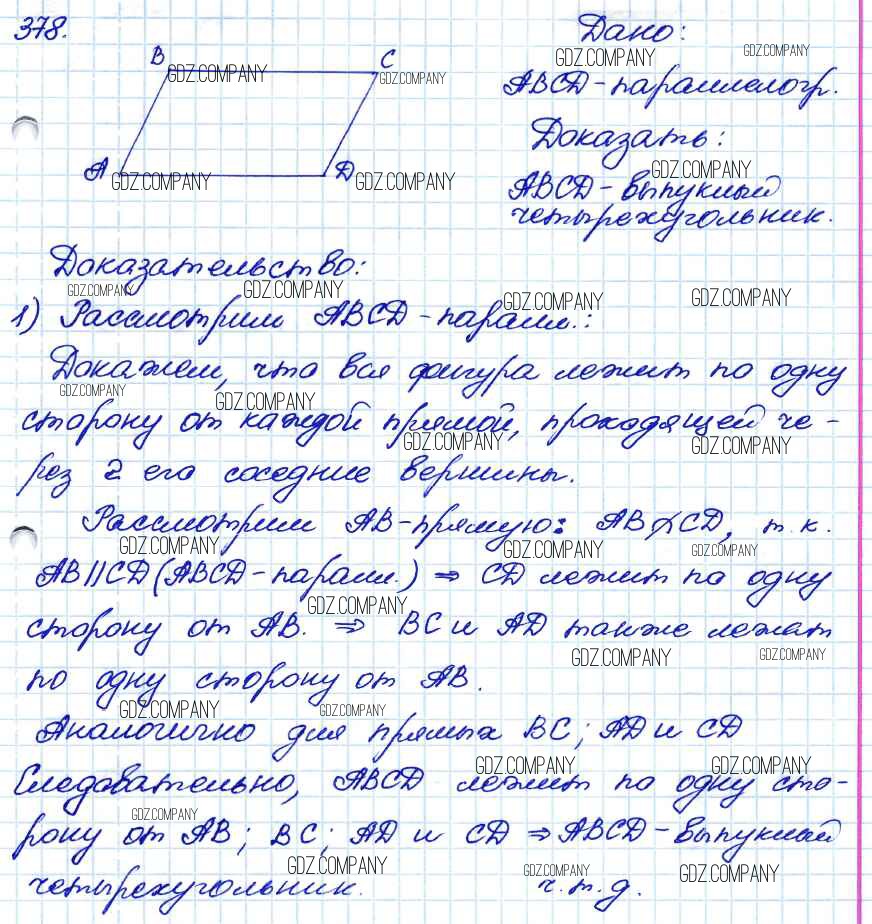 378.
Дано:
B C
GDZ.COMPANY GDZ.COMPANY
GDZ.COMPANY GDZ.COMPANY
ABCD-параллелогр.
Доказать:
A D
GDZ.COMPANY GDZ.COMPANY GDZ.COMPANY
ABCD-выпуклый
четырехугольник.
Доказательство:
GDZ.COMPANY GDZ.COMPANY GDZ.COMPANY GDZ.COMPANY
1) Рассмотрим ABCD-паралл.:
Докажем, что вся фигура лежит по одну
GDZ.COMPANY GDZ.COMPANY
сторону от каждой прямой, проходящей че-
GDZ.COMPANY GDZ.COMPANY
рез 2 его соседние вершины.
Рассмотрим AB-прямую: AB∦CD, т.к.
GDZ.COMPANY GDZ.COMPANY GDZ.COMPANY
AB||CD (ABCD-паралл.) ⇒ CD лежит по одну
GDZ.COMPANY
сторону от AB. ⇒ BC и AD также лежат
GDZ.COMPANY GDZ.COMPANY
по одну сторону от AB.
GDZ.COMPANY GDZ.COMPANY
Аналогично для прямых BC; AD и CD
GDZ.COMPANY GDZ.COMPANY
Следовательно, ABCD лежит по одну сто-
GDZ.COMPANY
рону от AB; BC; AD и CD ⇒ ABCD-выпуклый
GDZ.COMPANY GDZ.COMPANY GDZ.COMPANY
четырехугольник. ч.т.д.